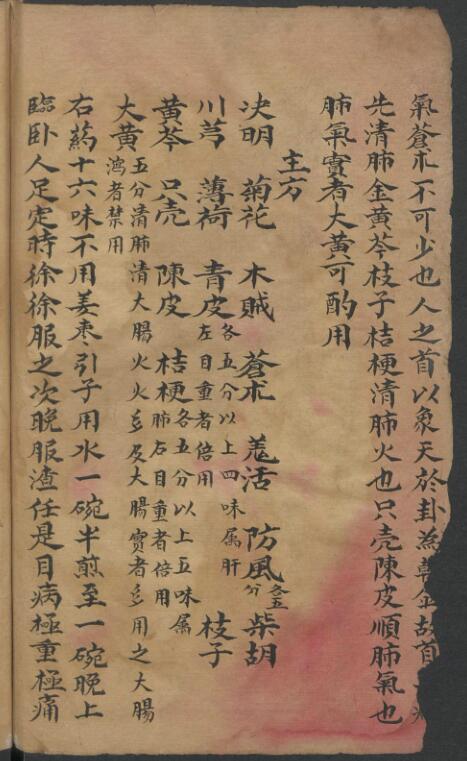 氣蒼朮不可少也人之首以象天於卦為乾金故首
先清肺金黃芩枝子桔梗清肺火也只壳陳皮順肺氣也
肺氣實者大黃可酌用
主方
決明 菊花 木賊 蒼朮 羗活 防風 各五分 柴胡
川芎 薄荷 青皮 各五分以上四味属肝左目重者倍用 枝子
黃芩 只壳 陳皮 桔梗 各五分以上五味属肺右目重者倍用
大黃 五分清肺清大腸火火多及大腸實者多用之大腸瀉者禁用
右藥十六味不用姜枣引子用水一碗半煎至一碗晚上
臨卧人足定時徐徐服之次晚服渣任是目病極重極痛